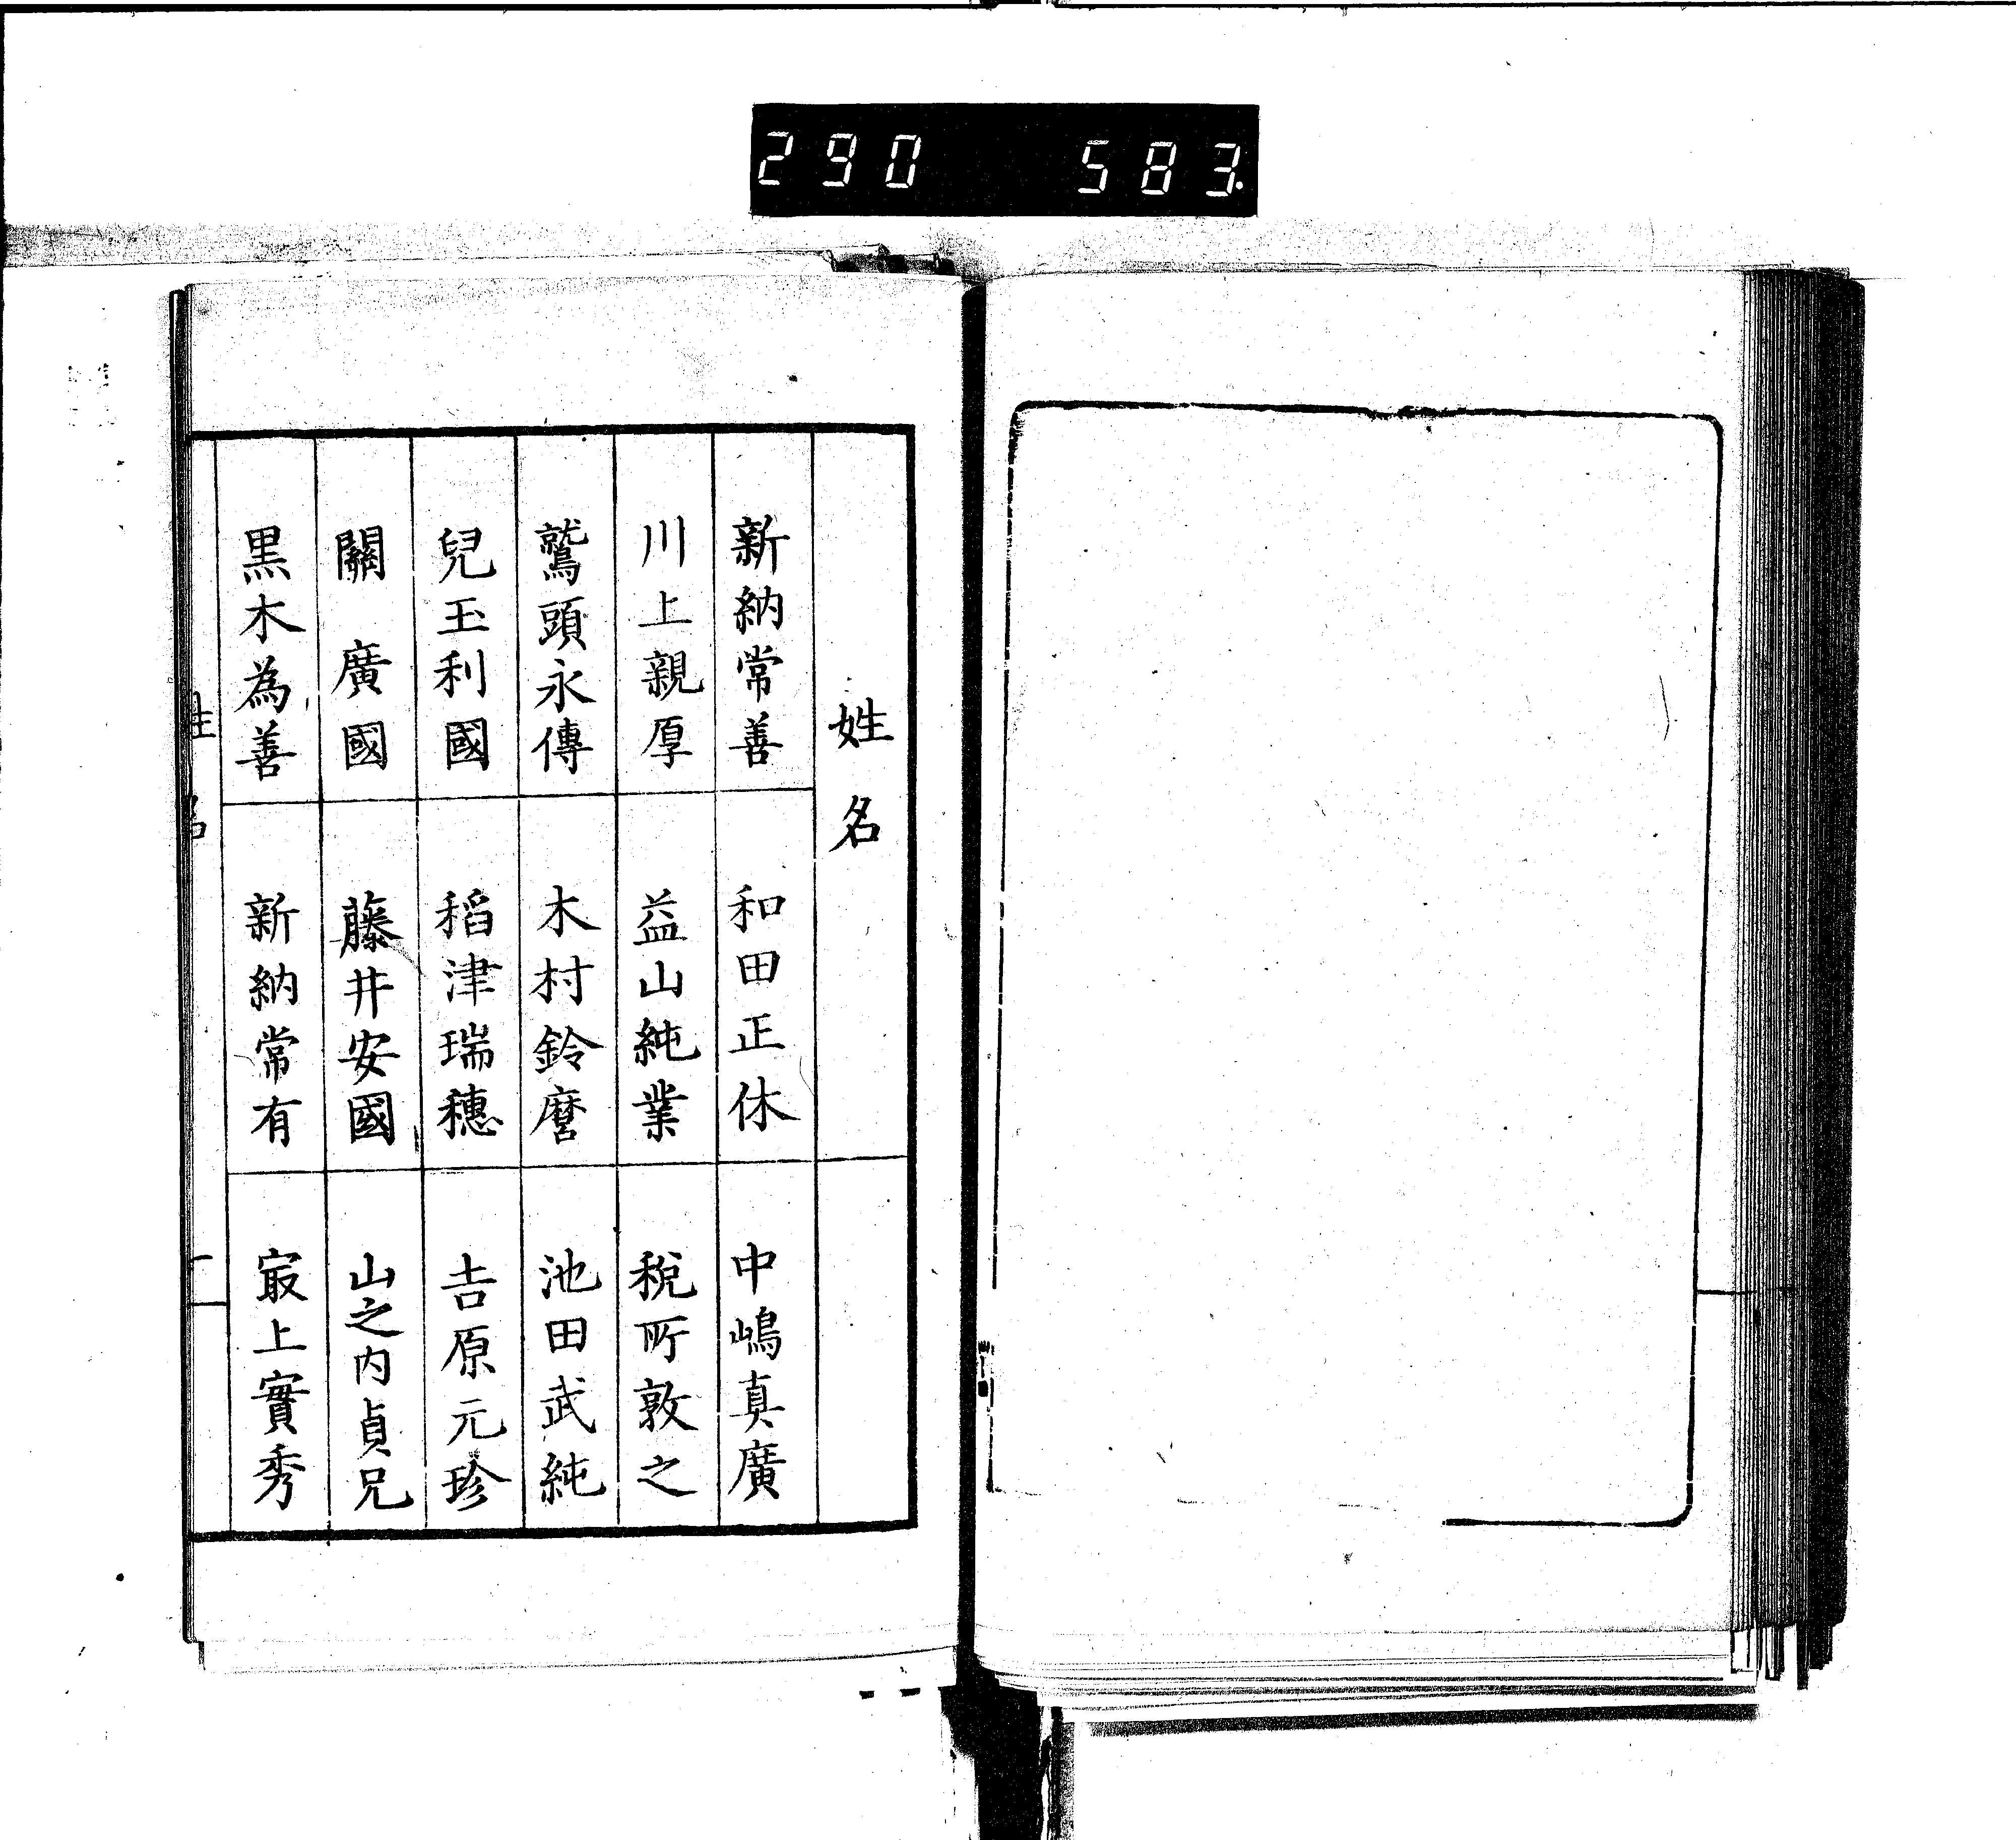 290 583.
姓名
新納常善 和田正休 中嶋真廣
川上親厚 益山純業 税所敦之
鷲頭永傳 木村鈴麿 池田武純
兒玉利國 稻津瑞穗 吉原元珍
關 廣國 藤井安國 山之内貞兄
黒木為善 新納常有 㝡上實秀
姓名